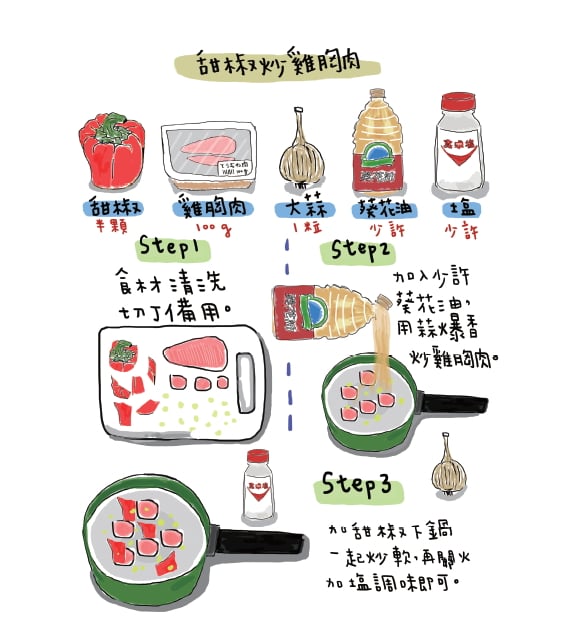 甜椒炒雞胸肉
甜椒
半顆
雞胸肉
100g
大蒜
1粒
葵花油
少許
塩
少許
Step1
食材清洗
切丁備用。
Step2
加入少許
葵花油,
用蒜爆香
炒雞胸肉。
Step3
加甜椒下鍋
一起炒軟,再關火
加塩調味即可。